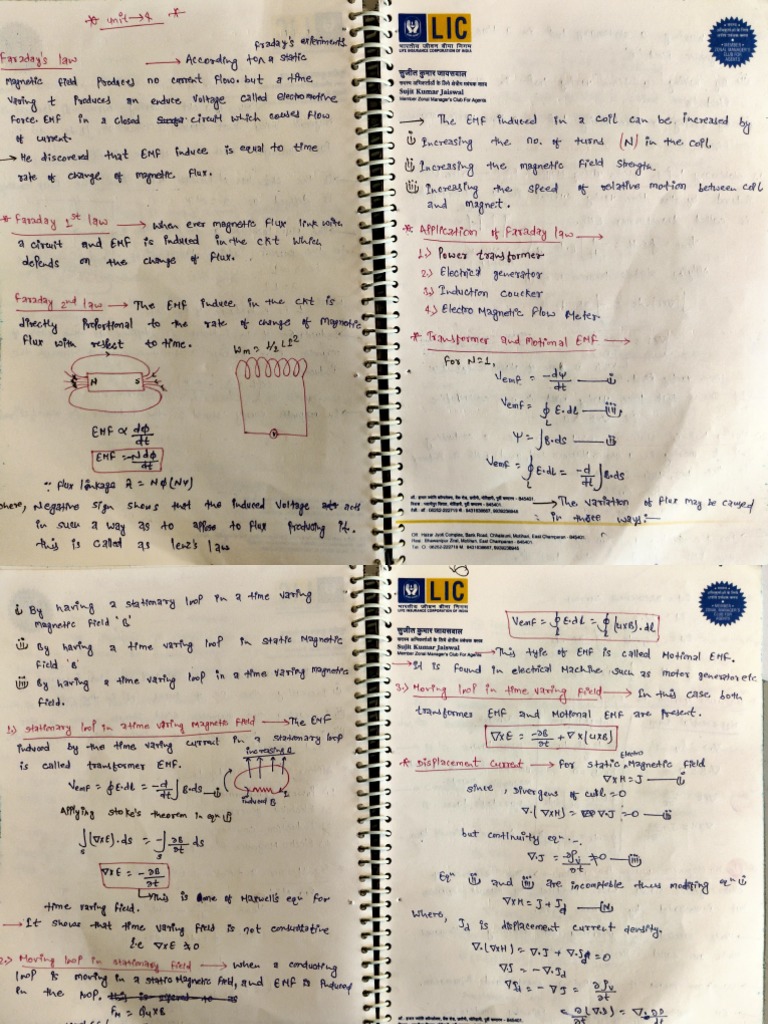 * unit → 4 *
fraday's exleriments.
Faraday's law → According ton a static
Magnetic field Produces no current flow. but a time
varing t Produces an enduce voltage called electromotive
force. EMF in a closed circuit which caused flow
of current.
→ He discovered that EMF induce is equal to time
rate of change of magnetic flux.
* Faraday 1st law → When ever magnetic flux link with
a circuit and EMF is induced in the ckt which
depends on the change of flux.
Faraday 2nd law → The EMF induce in the ckt is
directly Proportional to the rate of change of Magnetic
flux with respect to time.
Wm = 1/2 LI²
N S
EMF ∝ dϕ/dt
EMF = -N dϕ/dt
∵ flux linkage λ = Nϕ (Nψ)
where, Negative sign shows that the induced voltage acts
in such a way as to oppose to flux producing it.
this is called as lenz's law
LIC
भारतीय जीवन बीमा निगम
LIFE INSURANCE CORPORATION OF INDIA
सुजीत कुमार जायसवाल
Sujit Kumar Jaiswal
Member Zonal Manager's Club For Agents
→ The EMF induced in a coil can be increased by
i) Increasing the no. of turns (N) in the coil
ii) Increasing the magnetic field strength.
iii) Increasing the speed of relative motion between coil
and magnet.
* Application of Faraday law →
1.) Power transformer
2.) Electrical generator
3.) Induction coucker
4.) Electro Magnetic Flow Meter.
* Transformer and Motional EMF →
for N=1,
Vemf = -dψ/dt — i
Vemf = ∮L E.dL — iii,
ψ = ∫B.ds — ii
Vemf = ∮L E.dL = -d/dt ∫B.ds
→ The variation of flux may be caused
in three ways:-
Off. Hazar Jyoti Complex, Bank Road, Chhatauni, Motihari, East Champaran - 845401.
Resi. Bhawanipur Zirat, Motihari, East Champaran - 845401.
i) By having a stationary loop in a time varing
Magnetic field 'B'
ii) By having a time varing loop in static Magnetic
field 'B'
iii) By having a time varing loop in a time varing Magnetic
field.
1.) Stationary loop in a time varing Magnetic field → The EMF
induced by the time varing current in a stationary loop
is called transformer EMF.
increasing B
Vemf = ∮ E.dL = -d/dt ∫B.ds — i
induced B
Applying stoke's theorem in eqn i
∫s (∇×E).ds = -∫s ∂B/∂t ds
∇×E = -∂B/∂t
→ This is one of Maxwell's eqn for
time varing field.
→ It shows that time varing field is not conservative
i.e ∇×E ≠ 0
2.) Moving loop in stationary field → When a conducting
loop is moving in a static Magnetic field, and EMF is induced
in the loop. this is refered to as
Fm = Qu×B
LIC
भारतीय जीवन बीमा निगम
LIFE INSURANCE CORPORATION OF INDIA
सुजीत कुमार जायसवाल
Sujit Kumar Jaiswal
Member Zonal Manager's Club For Agents
Vemf = ∮L E.dL = ∮L (u×B).dL
→ This type of EMF is called Motional EMF.
→ It is found in electrical Machine such as motor generator etc
3.) Moving loop in time varing field → In this case both
transformer EMF and Motional EMF are present.
∇×E = -∂B/∂t + ∇×(u×B)
Electro
* Displacement current → For static, Magnetic field
∇×H = J — i
since, divergens of curl = 0
∇.(∇×H) = ∇.J = 0 — ii
but continuity eqn -.
∇.J = -∂ρv/∂t ≠ 0 — iii
Eqn ii and iii are incomptable thus modifing eqn i
∇×H = J + Jd — iv
where, Jd is displacement current density.
∇.(∇×H) = ∇.J + ∇.Jd = 0
∇J = -∇.Jd
∇Jd = -∇J = ∂ρv/∂t
= ∂/∂t (∇.D) = ∇.∂D/∂t